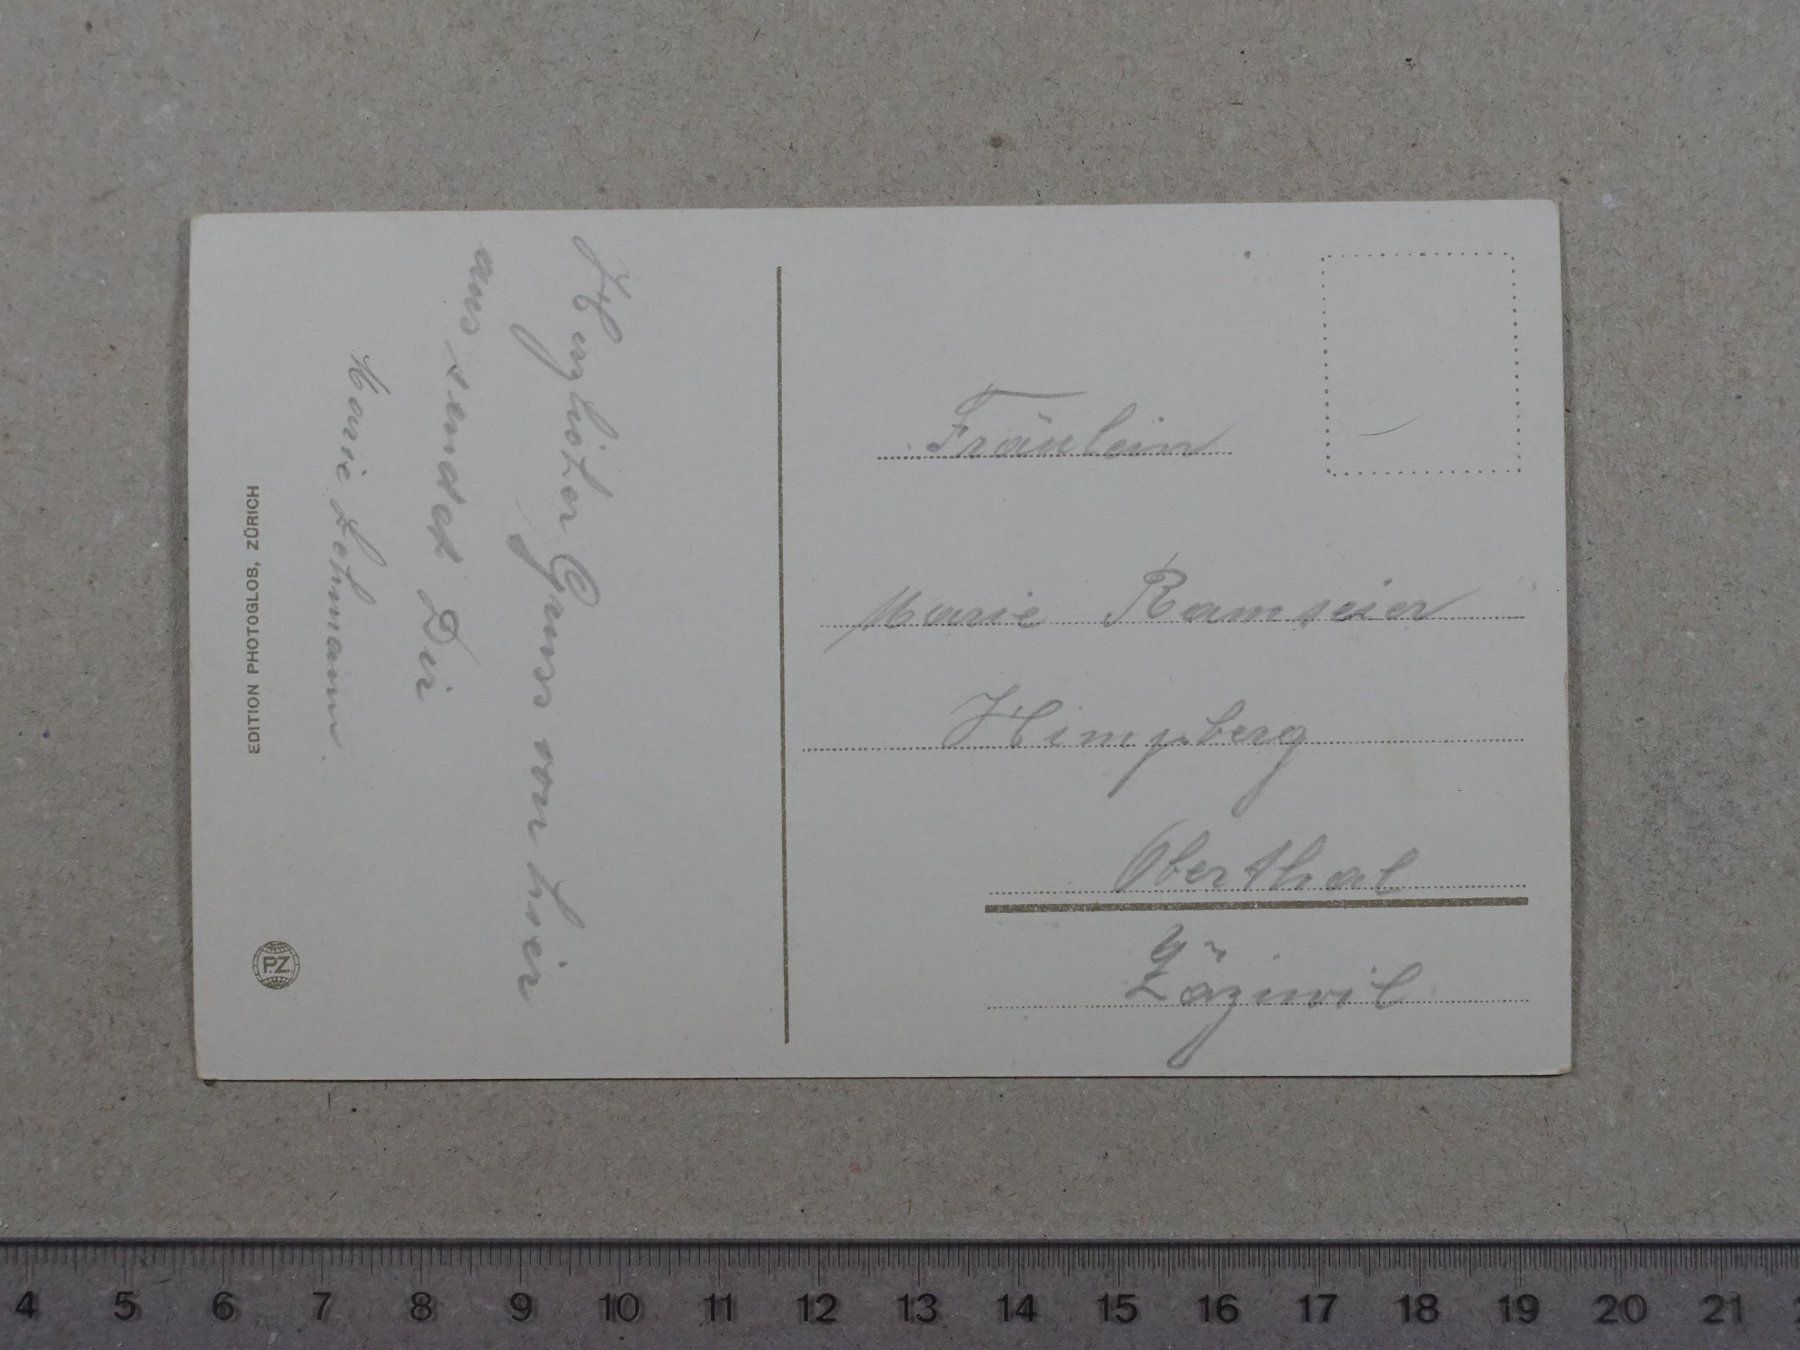 Herzlicher Gruss von hier
aus sendet Dir
Marie Lehmann.
EDITION PHOTOGLOB, ZÜRICH
P.Z
Fräulein
Marie Ramseier
Himpberg
Oberthal
Zäziwil
4 5 6 7 8 9 10 11 12 13 14 15 16 17 18 19 20 21